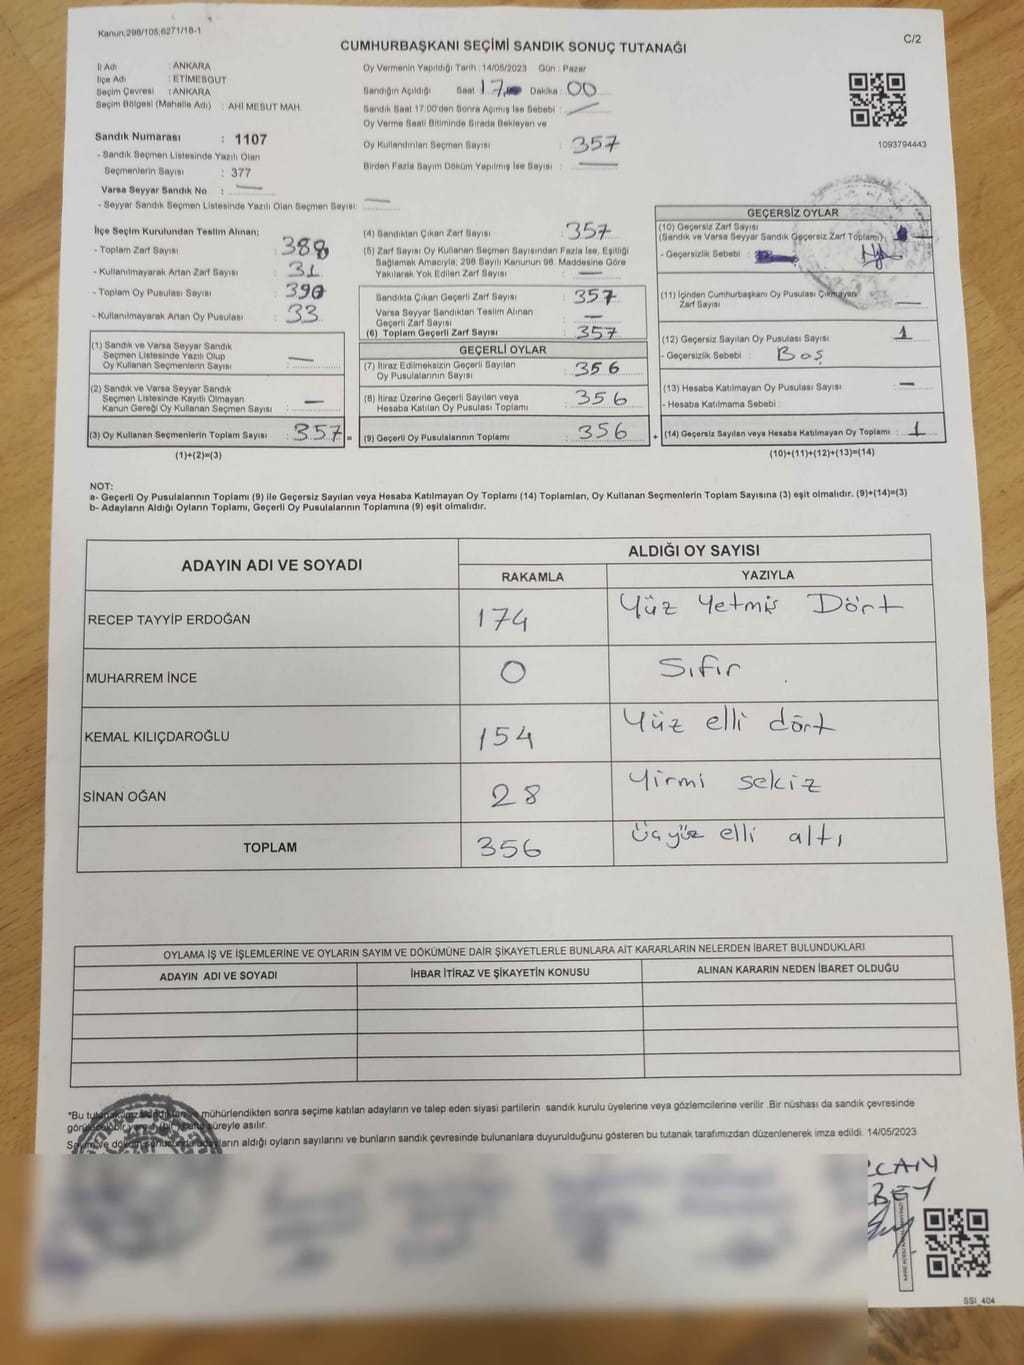 Kanun.298/105,6271/18-1
C/2
CUMHURBAŞKANI SEÇİMİ SANDIK SONUÇ TUTANAĞI
İl Adı : ANKARA
İlçe Adı : ETİMESGUT
Seçim Çevresi : ANKARA
Seçim Bölgesi (Mahalle Adı) : AHİ MESUT MAH.
Oy Vermenin Yapıldığı Tarih : 14/05/2023 Gün : Pazar
Sandığın Açıldığı Saat 17 Dakika : 00
Sandık Saat 17:00'den Sonra Açımış İse Sebebi :
Oy Verme Saati Bitiminde Sırada Bekleyen ve
Oy Kullandırılan Seçmen Sayısı : 357
Birden Fazla Sayım Döküm Yapılmış İse Sayısı : —
1093794443
Sandık Numarası : 1107
- Sandık Seçmen Listesinde Yazılı Olan
Seçmenlerin Sayısı : 377
Varsa Seyyar Sandık No : —
- Seyyar Sandık Seçmen Listesinde Yazılı Olan Seçmen Sayısı: —
İlçe Seçim Kurulundan Teslim Alınan;
- Toplam Zarf Sayısı : 388
- Kullanılmayarak Artan Zarf Sayısı : 31
- Toplam Oy Pusulası Sayısı : 390
- Kullanılmayarak Artan Oy Pusulası : 33
(1) Sandık ve Varsa Seyyar Sandık
Seçmen Listesinde Yazılı Olup
Oy Kullanan Seçmenlerin Sayısı : —
(2) Sandık ve Varsa Seyyar Sandık
Seçmen Listesinde Kayıtlı Olmayan
Kanun Gereği Oy Kullanan Seçmen Sayısı : —
(3) Oy Kullanan Seçmenlerin Toplam Sayısı : 357 =
(1)+(2)=(3)
(4) Sandıktan Çıkan Zarf Sayısı : 357
(5) Zarf Sayısı Oy Kullanan Seçmen Sayısından Fazla İse, Eşitliği
Sağlamak Amacıyla; 298 Sayılı Kanunun 98. Maddesine Göre
Yakılarak Yok Edilen Zarf Sayısı : —
Sandıkta Çıkan Geçerli Zarf Sayısı : 357
Varsa Seyyar Sandıktan Teslim Alınan
Geçerli Zarf Sayısı : —
(6) Toplam Geçerli Zarf Sayısı : 357
GEÇERLİ OYLAR
(7) İtiraz Edilmeksizin Geçerli Sayılan
Oy Pusulalarının Sayısı : 356
(8) İtiraz Üzerine Geçerli Sayılan veya
Hesaba Katılan Oy Pusulası Toplamı : 356
(9) Geçerli Oy Pusulalarının Toplamı : 356 +
GEÇERSİZ OYLAR
(10) Geçersiz Zarf Sayısı
(Sandık ve Varsa Seyyar Sandık Geçersiz Zarf Toplamı) :
- Geçersizlik Sebebi :
(11) İçinden Cumhurbaşkanı Oy Pusulası Çıkmayan
Zarf Sayısı : —
(12) Geçersiz Sayılan Oy Pusulası Sayısı : 1
- Geçersizlik Sebebi : Boş
(13) Hesaba Katılmayan Oy Pusulası Sayısı : —
- Hesaba Katılmama Sebebi :
(14) Geçersiz Sayılan veya Hesaba Katılmayan Oy Toplamı : 1
(10)+(11)+(12)+(13)=(14)
NOT:
a- Geçerli Oy Pusulalarının Toplamı (9) ile Geçersiz Sayılan veya Hesaba Katılmayan Oy Toplamı (14) Toplamları, Oy Kullanan Seçmenlerin Toplam Sayısına (3) eşit olmalıdır. (9)+(14)=(3)
b- Adayların Aldığı Oyların Toplamı, Geçerli Oy Pusulalarının Toplamına (9) eşit olmalıdır.
ADAYIN ADI VE SOYADI ALDIĞI OY SAYISI
RAKAMLA YAZIYLA
RECEP TAYYİP ERDOĞAN 174 Yüz Yetmiş Dört
MUHARREM İNCE 0 Sıfır
KEMAL KILIÇDAROĞLU 154 Yüz elli dört
SİNAN OĞAN 28 Yirmi sekiz
TOPLAM 356 üçyüz elli altı
OYLAMA İŞ VE İŞLEMLERİNE VE OYLARIN SAYIM VE DÖKÜMÜNE DAİR ŞİKAYETLERLE BUNLARA AİT KARARLARIN NELERDEN İBARET BULUNDUKLARI
ADAYIN ADI VE SOYADI İHBAR İTİRAZ VE ŞİKAYETİN KONUSU ALINAN KARARIN NEDEN İBARET OLDUĞU
*Bu tutanak imzalandıktan ve mühürlendikten sonra seçime katılan adayların ve talep eden siyasi partilerin sandık kurulu üyelerine veya gözlemcilerine verilir. Bir nüshası da sandık çevresinde
bir yere (bir) hafta süreyle asılır.
Sayım ve döküm sonucunda adayların aldığı oyların sayılarını ve bunların sandık çevresinde bulunanlara duyurulduğunu gösteren bu tutanak tarafımızdan düzenlenerek imza edildi. 14/05/2023
CAN
BEY
SSI_404